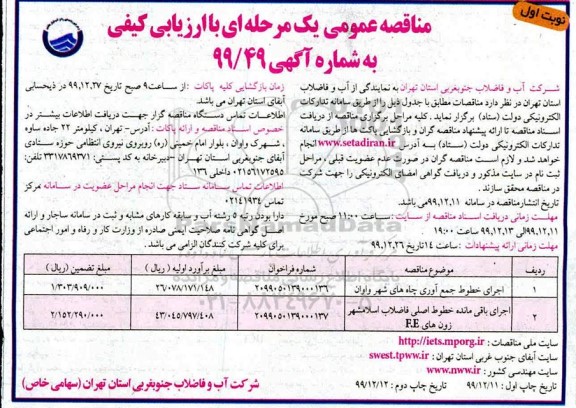 نوبت اول
مناقصه عمومی یک مرحله ای با ارزیابی کیفی
به شماره آگهی ۹۹/۴۹
شرکت آب و فاضلاب جنوبغربی استان تهران به نمایندگی از آب و فاضلاب
استان تهران در نظر دارد مناقصات مطابق با جدول ذیل را از طریق سامانه تدارکات
الکترونیکی دولت (ستاد) برگزار نماید. کلیه مراحل برگزاری مناقصه از دریافت
اسناد مناقصه تا ارائه پیشنهاد مناقصه گران و بازگشایی پاکت ها از طریق سامانه
تدارکات الکترونیکی دولت (ستاد) به آدرس www.setadiran.ir انجام
خواهد شد و لازم است مناقصه گران در صورت عدم عضویت قبلی، مراحل
ثبت نام در سایت مذکور و دریافت گواهی امضای الکترونیکی را جهت شرکت
در مناقصه محقق سازند.
تاریخ انتشار مناقصه در سامانه ۹۹,۱۲,۱۱ می باشد.
مهلت زمانی دریافت اسناد مناقصه از سایت: ساعت ۱۱:۰۰ صبح مورخ
۹۹,۱۲,۱۱ الی ۹۹,۱۲,۱۳ ساعت ۱۹:۰۰
مهلت زمانی ارائه پیشنهادات: ساعت ۱۴ تاریخ ۹۹,۱۲,۲۶
زمان بازگشایی کلیه پاکات: از ساعت ۹ صبح تاریخ ۹۹,۱۲,۲۷ در ذیحسابی
آبفای استان تهران می باشد.
اطلاعات تماس دستگاه مناقصه گزار جهت دریافت اطلاعات بیشتر در
خصوص اسناد مناقصه و ارائه پاکات: آدرس- تهران، کیلومتر ۲۲ جاده ساوه
، شهرک واوان، بلوار امام خمینی (ره) روبروی نیروی انتظامی حوزه ستادی
آبفای جنوبغربی استان تهران -دبیرخانه به کد پستی: ۳۳۱۷۸۶۹۳۷۱ تلفن:
۰۲۱۵۶۱۷۲۵۹۵ داخلی ۱۳۶
اطلاعات تماس سامانه ستاد جهت انجام مراحل عضویت در سامانه مرکز
تماس ۰۲۱۴۱۹۳۴
دارا بودن رتبه ۵ رشته آب و سابقه کارهای مشابه و ثبت در سامانه ساجار و ارائه
اصل گواهی نامه صلاحیت ایمنی صادره از وزارت کار و رفاه و امور اجتماعی
برای کلیه شرکت کنندگان الزامی می باشد.
ردیف موضوع مناقصه شماره فراخوان مبلغ برآورد اولیه (ریال) مبلغ تضمین (ریال)
۱ اجرای خطوط جمع آوری چاه های شهر واوان ۲۰۹۹۰۵۰۱۳۹۰۰۰۱۳۶ ۲۶/۰۷۸/۱۷۱/۱۴۸ ۱/۳۰۳/۹۰۹/۰۰۰
۲ اجرای باقی مانده خطوط اصلی فاضلاب اسلامشهر زون های F،E ۲۰۹۹۰۵۰۱۳۹۰۰۰۱۳۷ ۴۳/۰۴۵/۷۹۷/۴۰۸ ۲/۱۵۲/۲۹۰/۰۰۰
سایت ملی مناقصات : http://iets.mporg.ir
سایت آبفای جنوب غربی استان تهران : swest.tpww.ir
سایت مهندسی کشور : www.nww.ir
تاریخ چاپ اول : ۹۹/۱۲/۱۱ تاریخ چاپ دوم : ۹۹/۱۲/۱۲
شرکت آب و فاضلاب جنوبغربی استان تهران (سهامی خاص)